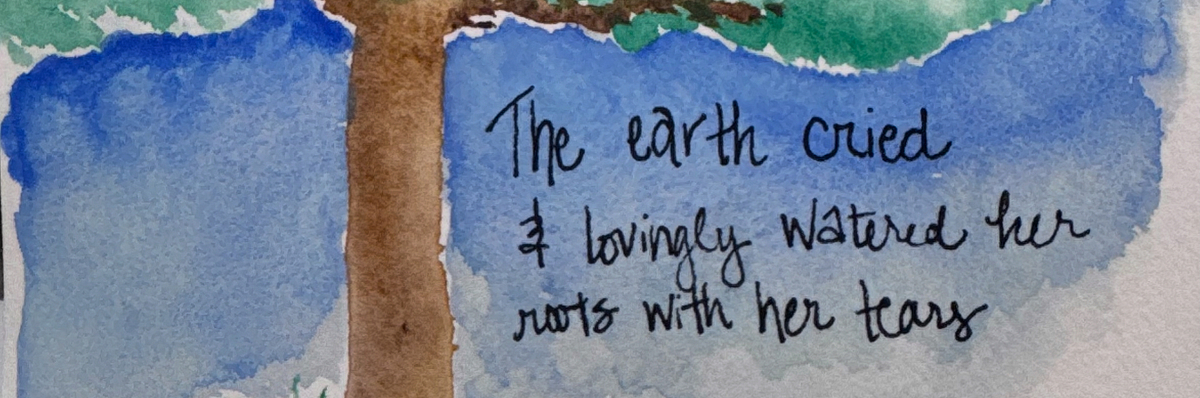 The earth cried
& lovingly watered her
roots with her tears